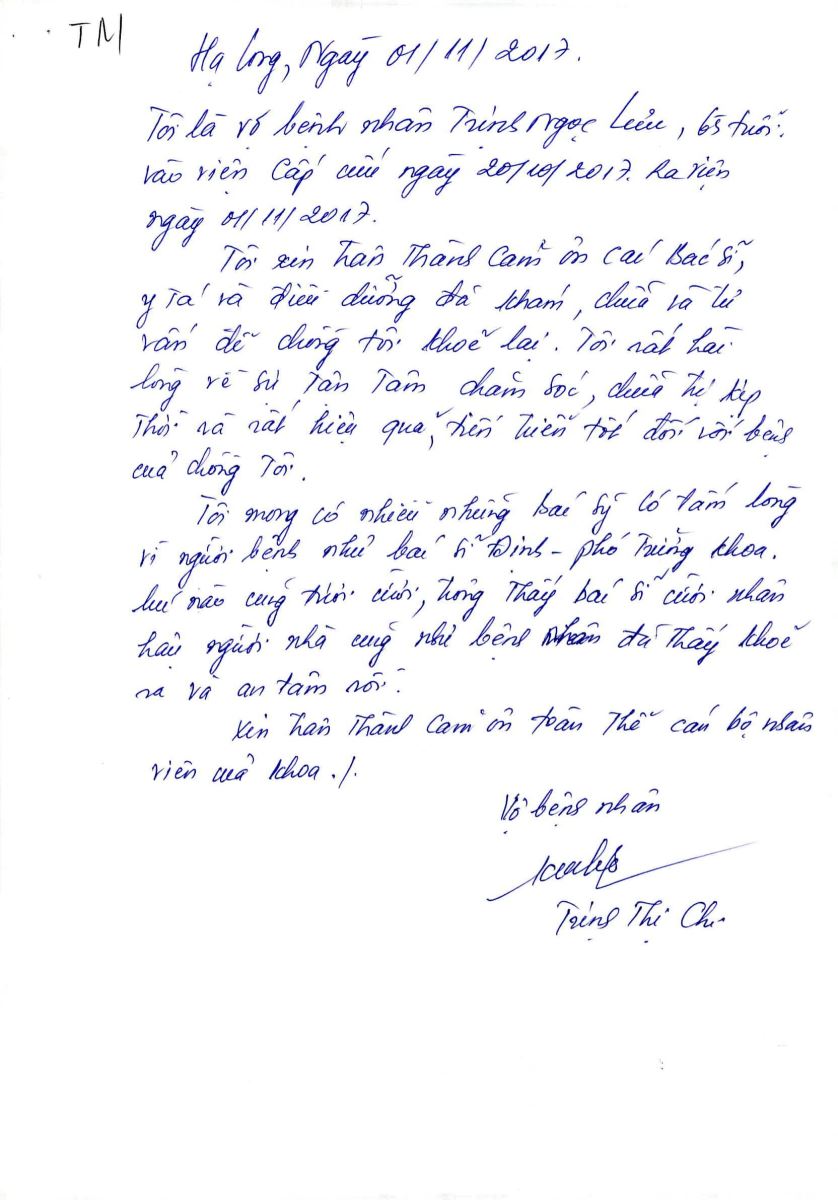 TM
Hạ Long, Ngày 01/11/2017.
Tôi là vợ bệnh nhân Trịnh Ngọc Lưu, 65 tuổi.
vào viện Cấp cứu ngày 20/10/2017. Ra viện
ngày 01/11/2017.
Tôi xin trân Thành Cảm ơn các Bác sĩ,
y Tá và điều dưỡng đã khám, chữa và tư
vấn để chồng tôi khoẻ lại. Tôi rất hài
lòng về sự Tận Tâm chăm sóc, chữa trị kịp
Thời và rất hiệu quả, tiến triển tốt đối với bệnh
của chồng Tôi.
Tôi mong có nhiều những bác sỹ có tấm lòng
vì người bệnh như bác sĩ Định - phó Trưởng khoa.
lúc nào cũng tươi cười, trông Thấy bác sĩ cười nhân
hậu người nhà cũng như bệnh nhân đã Thấy khoẻ
ra và an tâm rồi.
Xin trân Thành Cảm ơn toàn Thể cán bộ nhân
viên của khoa ./.
Vợ bệnh nhân
Trịnh Thị